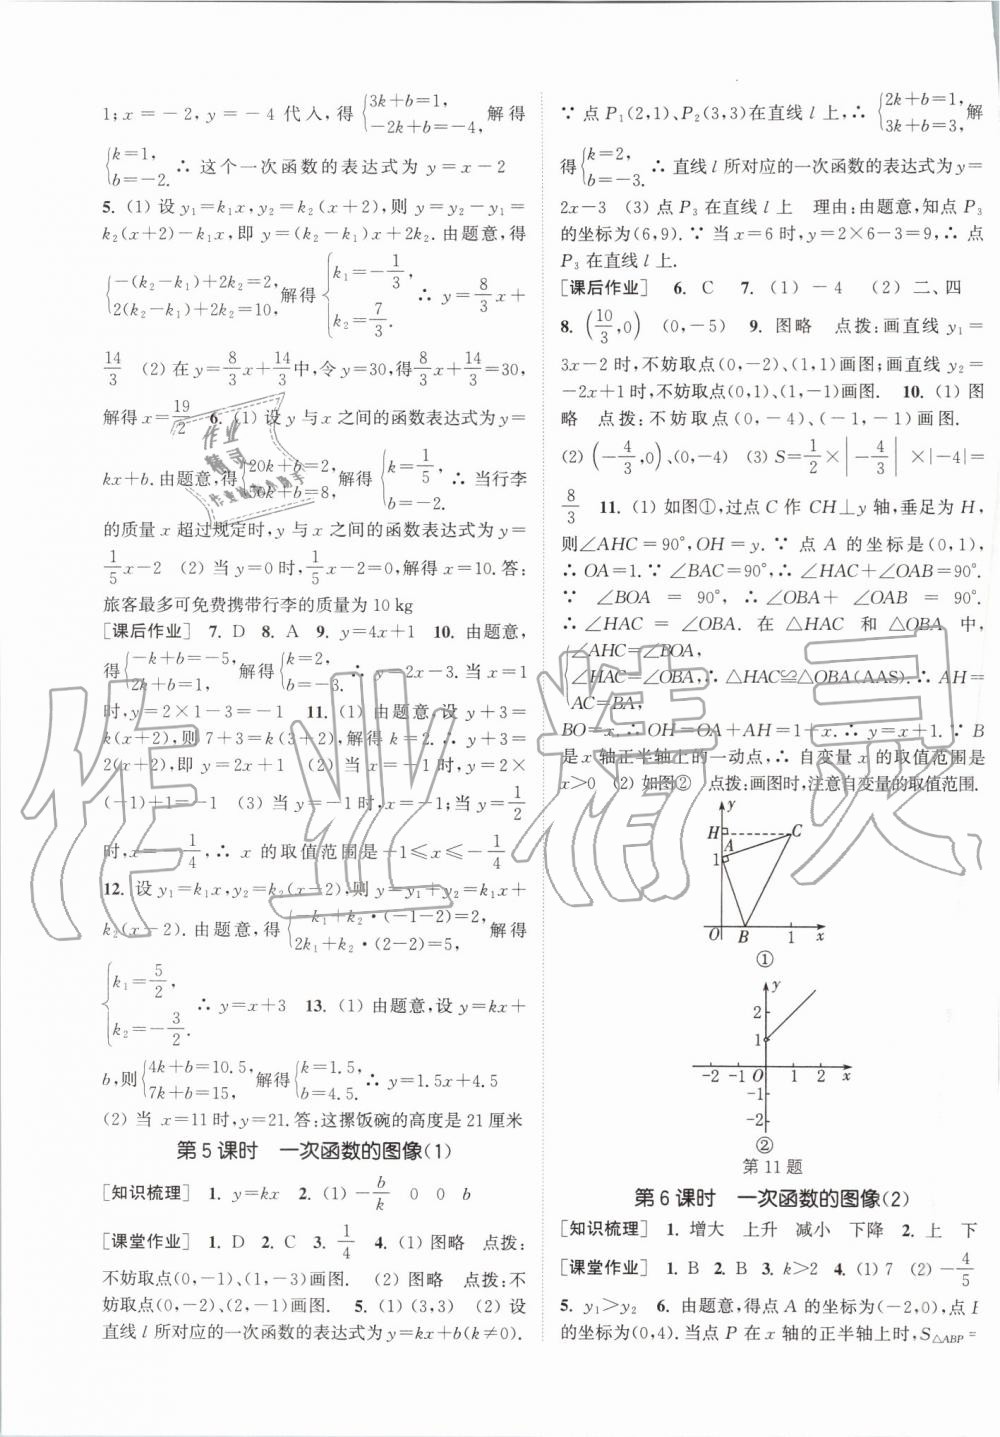 1;x=-2,y=-4 代人,得{3k+b=1, -2k+b=-4, 解得
{k=1, b=-2. ∴ 这个一次函数的表达式为 y=x-2
5. (1) 设 y₁=k₁x,y₂=k₂(x+2),则 y=y₂-y₁=
k₂(x+2)-k₁x,即 y=(k₂-k₁)x+2k₂. 由题意,得
{-(k₂-k₁)+2k₂=2, 2(k₂-k₁)+2k₂=10, 解得{k₁=-1/3, k₂=7/3. ∴ y=8/3x+
14/3 (2) 在 y=8/3x+14/3中,令 y=30,得8/3x+14/3=30,
解得 x=19/2 6. (1) 设 y 与 x 之间的函数表达式为 y=
kx+b. 由题意,得{20k+b=2, 50k+b=8, 解得{k=1/5, b=-2. ∴ 当行李
的质量 x 超过规定时,y 与 x 之间的函数表达式为 y=
1/5x-2 (2) 当 y=0 时,1/5x-2=0,解得 x=10. 答:
旅客最多可免费携带行李的质量为 10 kg
[课后作业] 7. D 8. A 9. y=4x+1 10. 由题意,
得{-k+b=-5, 2k+b=1, 解得{k=2, b=-3. ∴ y=2x-3. 当 x=1
时,y=2×1-3=-1 11. (1) 由题意,设 y+3=
k(x+2),则 7+3=k(3+2),解得 k=2. ∴ y+3=
2(x+2),即 y=2x+1 (2) 当 x=-1 时,y=2×
(-1)+1=-1 (3) 当 y=-1 时,x=-1;当 y=1/2
时,x=-1/4,∴ x 的取值范围是-1≤x≤-1/4
12. 设 y₁=k₁x,y₂=k₂(x-2),则 y=y₁+y₂=k₁x+
k₂(x-2). 由题意,得{-k₁+k₂·(-1-2)=2, 2k₁+k₂·(2-2)=5, 解得
{k₁=5/2, k₂=-3/2. ∴ y=x+3 13. (1) 由题意,设 y=kx+
b,则{4k+b=10.5, 7k+b=15, 解得{k=1.5, b=4.5. ∴ y=1.5x+4.5
(2) 当 x=11 时,y=21. 答:这摞饭碗的高度是 21 厘米
第 5 课时 一次函数的图像(1)
[知识梳理] 1. y=kx 2. (1) -b/k 0 0 b
[课堂作业] 1. D 2. C 3. 1/4 4. (1) 图略 点拨:
不妨取点(0,-1)、(1,-3)画图. (2) 图略 点拨:不
妨取点(0,-2)、(2,-1)画图. 5. (1) (3,3) (2) 设
直线 l 所对应的一次函数的表达式为 y=kx+b(k≠0).
∵ 点 P₁(2,1)、P₂(3,3)在直线 l 上,∴ {2k+b=1, 3k+b=3, 解
得{k=2, b=-3. ∴ 直线 l 所对应的一次函数的表达式为 y=
2x-3 (3) 点 P₃ 在直线 l 上 理由:由题意,知点 P₃
的坐标为(6,9). ∵ 当 x=6 时,y=2×6-3=9,∴ 点
P₃ 在直线 l 上.
[课后作业] 6. C 7. (1) -4 (2) 二、四
8. (10/3,0) (0,-5) 9. 图略 点拨:画直线 y₁=
3x-2 时,不妨取点(0,-2)、(1,1)画图;画直线 y₂=
-2x+1 时,不妨取点(0,1)、(1,-1)画图. 10. (1) 图
略 点拨:不妨取点(0,-4)、(-1,-1)画图.
(2) (-4/3,0)、(0,-4) (3) S=1/2×|-4/3|×|-4|=
8/3 11. (1) 如图①,过点 C 作 CH⊥y 轴,垂足为 H,
则∠AHC=90°,OH=y. ∵ 点 A 的坐标是(0,1),
∴ OA=1. ∵ ∠BAC=90°,∴ ∠HAC+∠OAB=90°.
∵ ∠BOA = 90°, ∴ ∠OBA+ ∠OAB = 90°.
∴ ∠HAC = ∠OBA. 在 △HAC 和 △OBA 中,
{∠AHC=∠BOA, ∠HAC=∠OBA, AC=BA, ∴ △HAC≌△OBA(AAS). ∴ AH=
BO=x. ∴ OH=OA+AH=1+x. ∴ y=x+1. ∵ B
是 x 轴正半轴上的一动点,∴ 自变量 x 的取值范围是
x>0 (2) 如图② 点拨:画图时,注意自变量的取值范围.
y
H C
A
1
O B 1 x
①
y
2
1
-2 -1 O 1 2 x
-1
-2
②
第 11 题
第 6 课时 一次函数的图像(2)
[知识梳理] 1. 增大 上升 减小 下降 2. 上 下
[课堂作业] 1. B 2. B 3. k>2 4. (1) 7 (2) -4/5
5. y₁>y₂ 6. 由题意,得点 A 的坐标为(-2,0),点
的坐标为(0,4). 当点 P 在 x 轴的正半轴上时,S△ABP=
作业精灵
作业
精灵